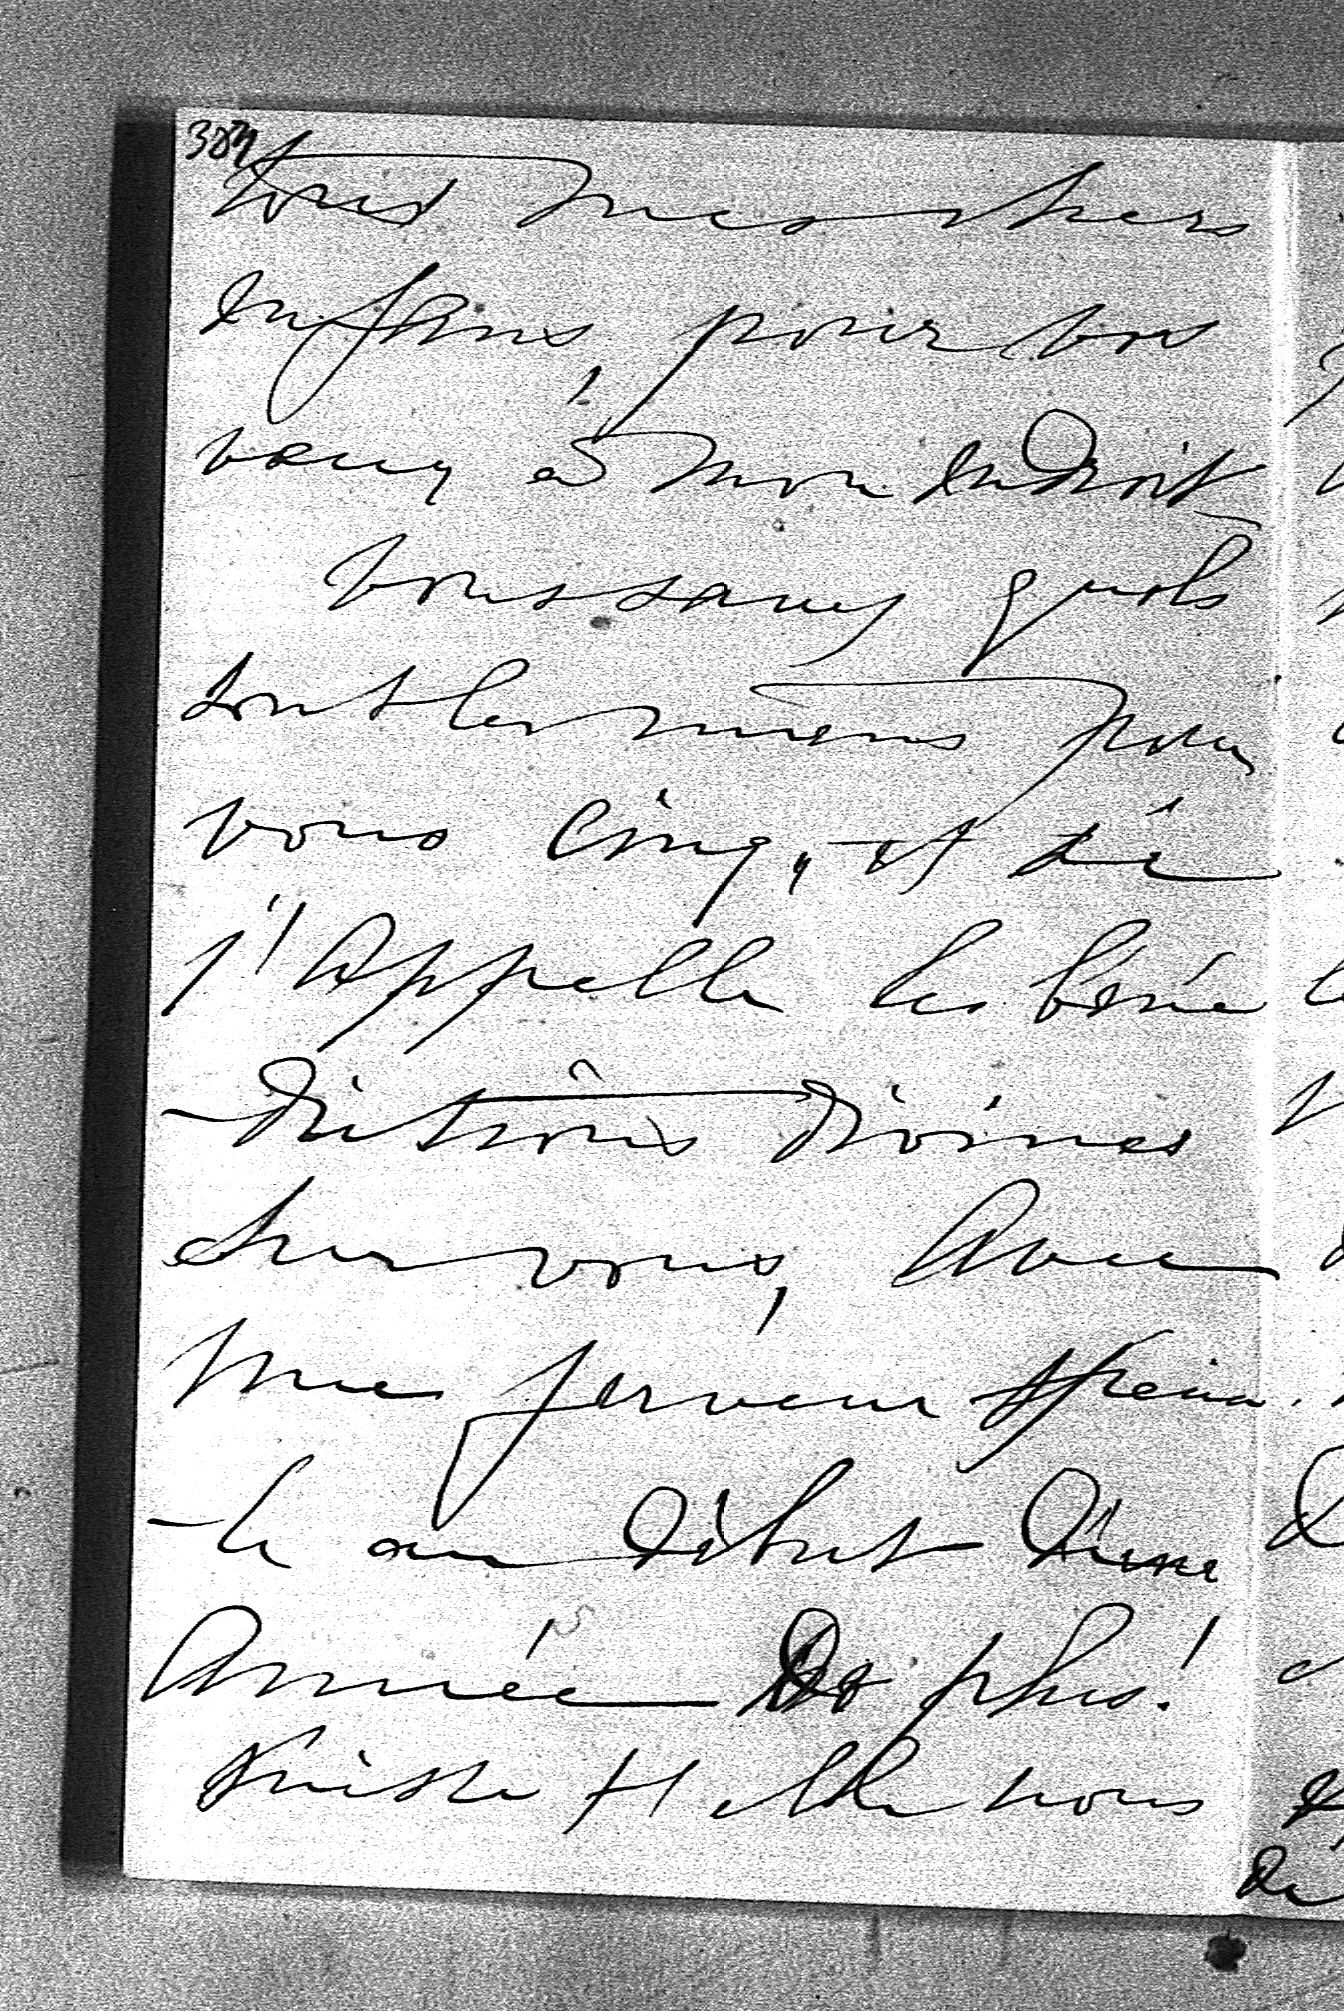 tous mes chers
Enfans, pour vos
vœux à mon Endroit,
vous savez quels
sont les miens pour
vous cinq, et si
j'Appelle les béné
-dictions Divines
sur vous, Avec
une ferveur spécia
-le au Début D'une
Année De plus!
Puisse t'elle nous